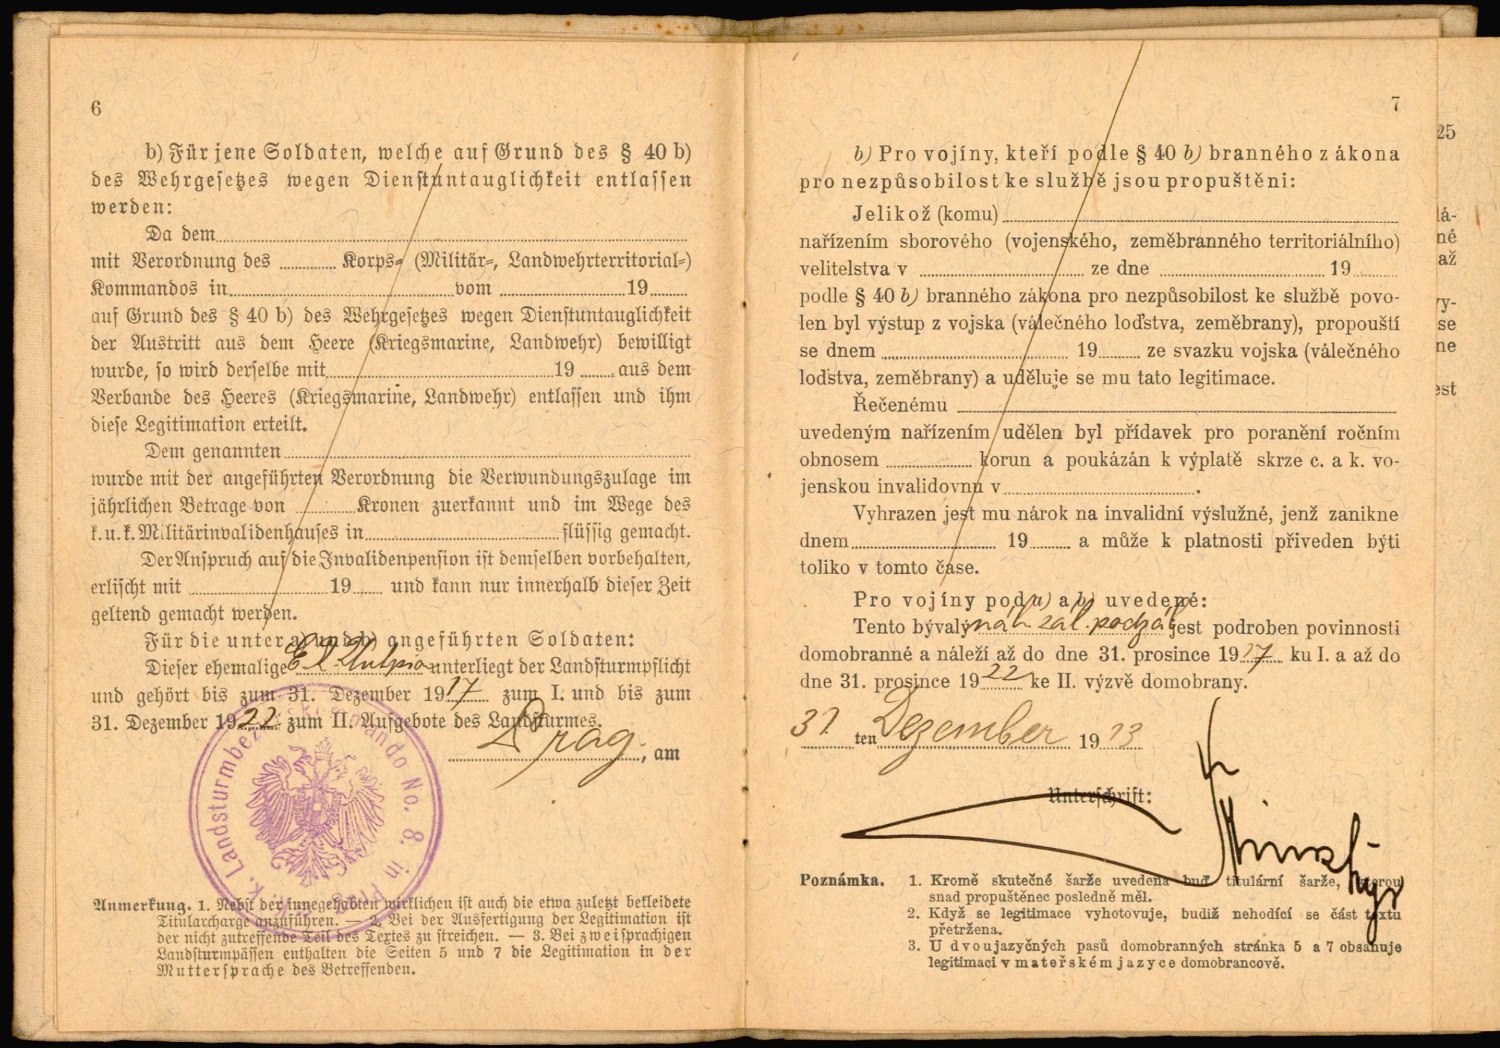 6
b) Für jene Soldaten, welche auf Grund des § 40 b)
des Wehrgesetzes wegen Dienstuntauglichkeit entlassen
werden:
Da dem
mit Verordnung des ........ Korps- (Militär-, Landwehrterritorial-)
Kommandos in ........ vom ........ 19
auf Grund des § 40 b) des Wehrgesetzes wegen Dienstuntauglichkeit
der Austritt aus dem Heere (Kriegsmarine, Landwehr) bewilligt
wurde, so wird derselbe mit ........ 19 ..... aus dem
Verbande des Heeres (Kriegsmarine, Landwehr) entlassen und ihm
diese Legitimation erteilt.
Dem genannten
wurde mit der angeführten Verordnung die Verwundungszulage im
jährlichen Betrage von ........ Kronen zuerkannt und im Wege des
k. u. k. Militärinvalidenhauses in ........ flüssig gemacht.
Der Anspruch auf die Invalidenpension ist demselben vorbehalten,
erlischt mit ........ 19 ..... und kann nur innerhalb dieser Zeit
geltend gemacht werden.
Für die unter a und b) angeführten Soldaten:
Dieser ehemalige unterliegt der Landsturmpflicht
und gehört bis zum 31. Dezember 1917 zum I. und bis zum
31. Dezember 1922 zum II. Aufgebote des Landsturmes.
Prag, am
k. k. Landsturmbezirkskommando No. 8. in Prag
Anmerkung. 1. Nebst der innegehabten wirklichen ist auch die etwa zuletzt bekleidete
Titularcharge anzuführen. — 2. Bei der Ausfertigung der Legitimation ist
der nicht zutreffende Teil des Textes zu streichen. — 3. Bei zweisprachigen
Landsturmpässen enthalten die Seiten 5 und 7 die Legitimation in der
Muttersprache des Betreffenden.
7
b) Pro vojíny, kteří podle § 40 b) branného zákona
pro nezpůsobilost ke službě jsou propuštěni:
Jelikož (komu)
nařízením sborového (vojenského, zeměbranného territoriálního)
velitelstva v ........ ze dne ........ 19
podle § 40 b) branného zákona pro nezpůsobilost ke službě povo-
len byl výstup z vojska (válečného loďstva, zeměbrany), propouští
se dnem ........ 19 ..... ze svazku vojska (válečného
loďstva, zeměbrany) a uděluje se mu tato legitimace.
Řečenému
uvedeným nařízením udělen byl přídavek pro poranění ročním
obnosem ........ korun a poukázán k výplatě skrze c. a k. vo-
jenskou invalidovnu v ........ .
Vyhrazen jest mu nárok na invalidní výslužné, jenž zanikne
dnem ........ 19 ..... a může k platnosti přiveden býti
toliko v tomto čase.
Pro vojíny pod a) a b) uvedené:
Tento bývalý náh. zál. jest podroben povinnosti
domobranné a náleží až do dne 31. prosince 1917 ku I. a až do
dne 31. prosince 1922 ke II. výzvě domobrany.
31 ten Dezember 1913
Unterschrift:
Poznámka. 1. Kromě skutečné šarže uvedena buď titulární šarže, kterou
snad propuštěnec posledně měl.
2. Když se legitimace vyhotovuje, budiž nehodící se část textu
přetržena.
3. U dvoujazyčných pasů domobranných stránka 5 a 7 obsahuje
legitimaci v mateřském jazyce domobrancově.
25
lá-
né
až
vy-
se
ne
est